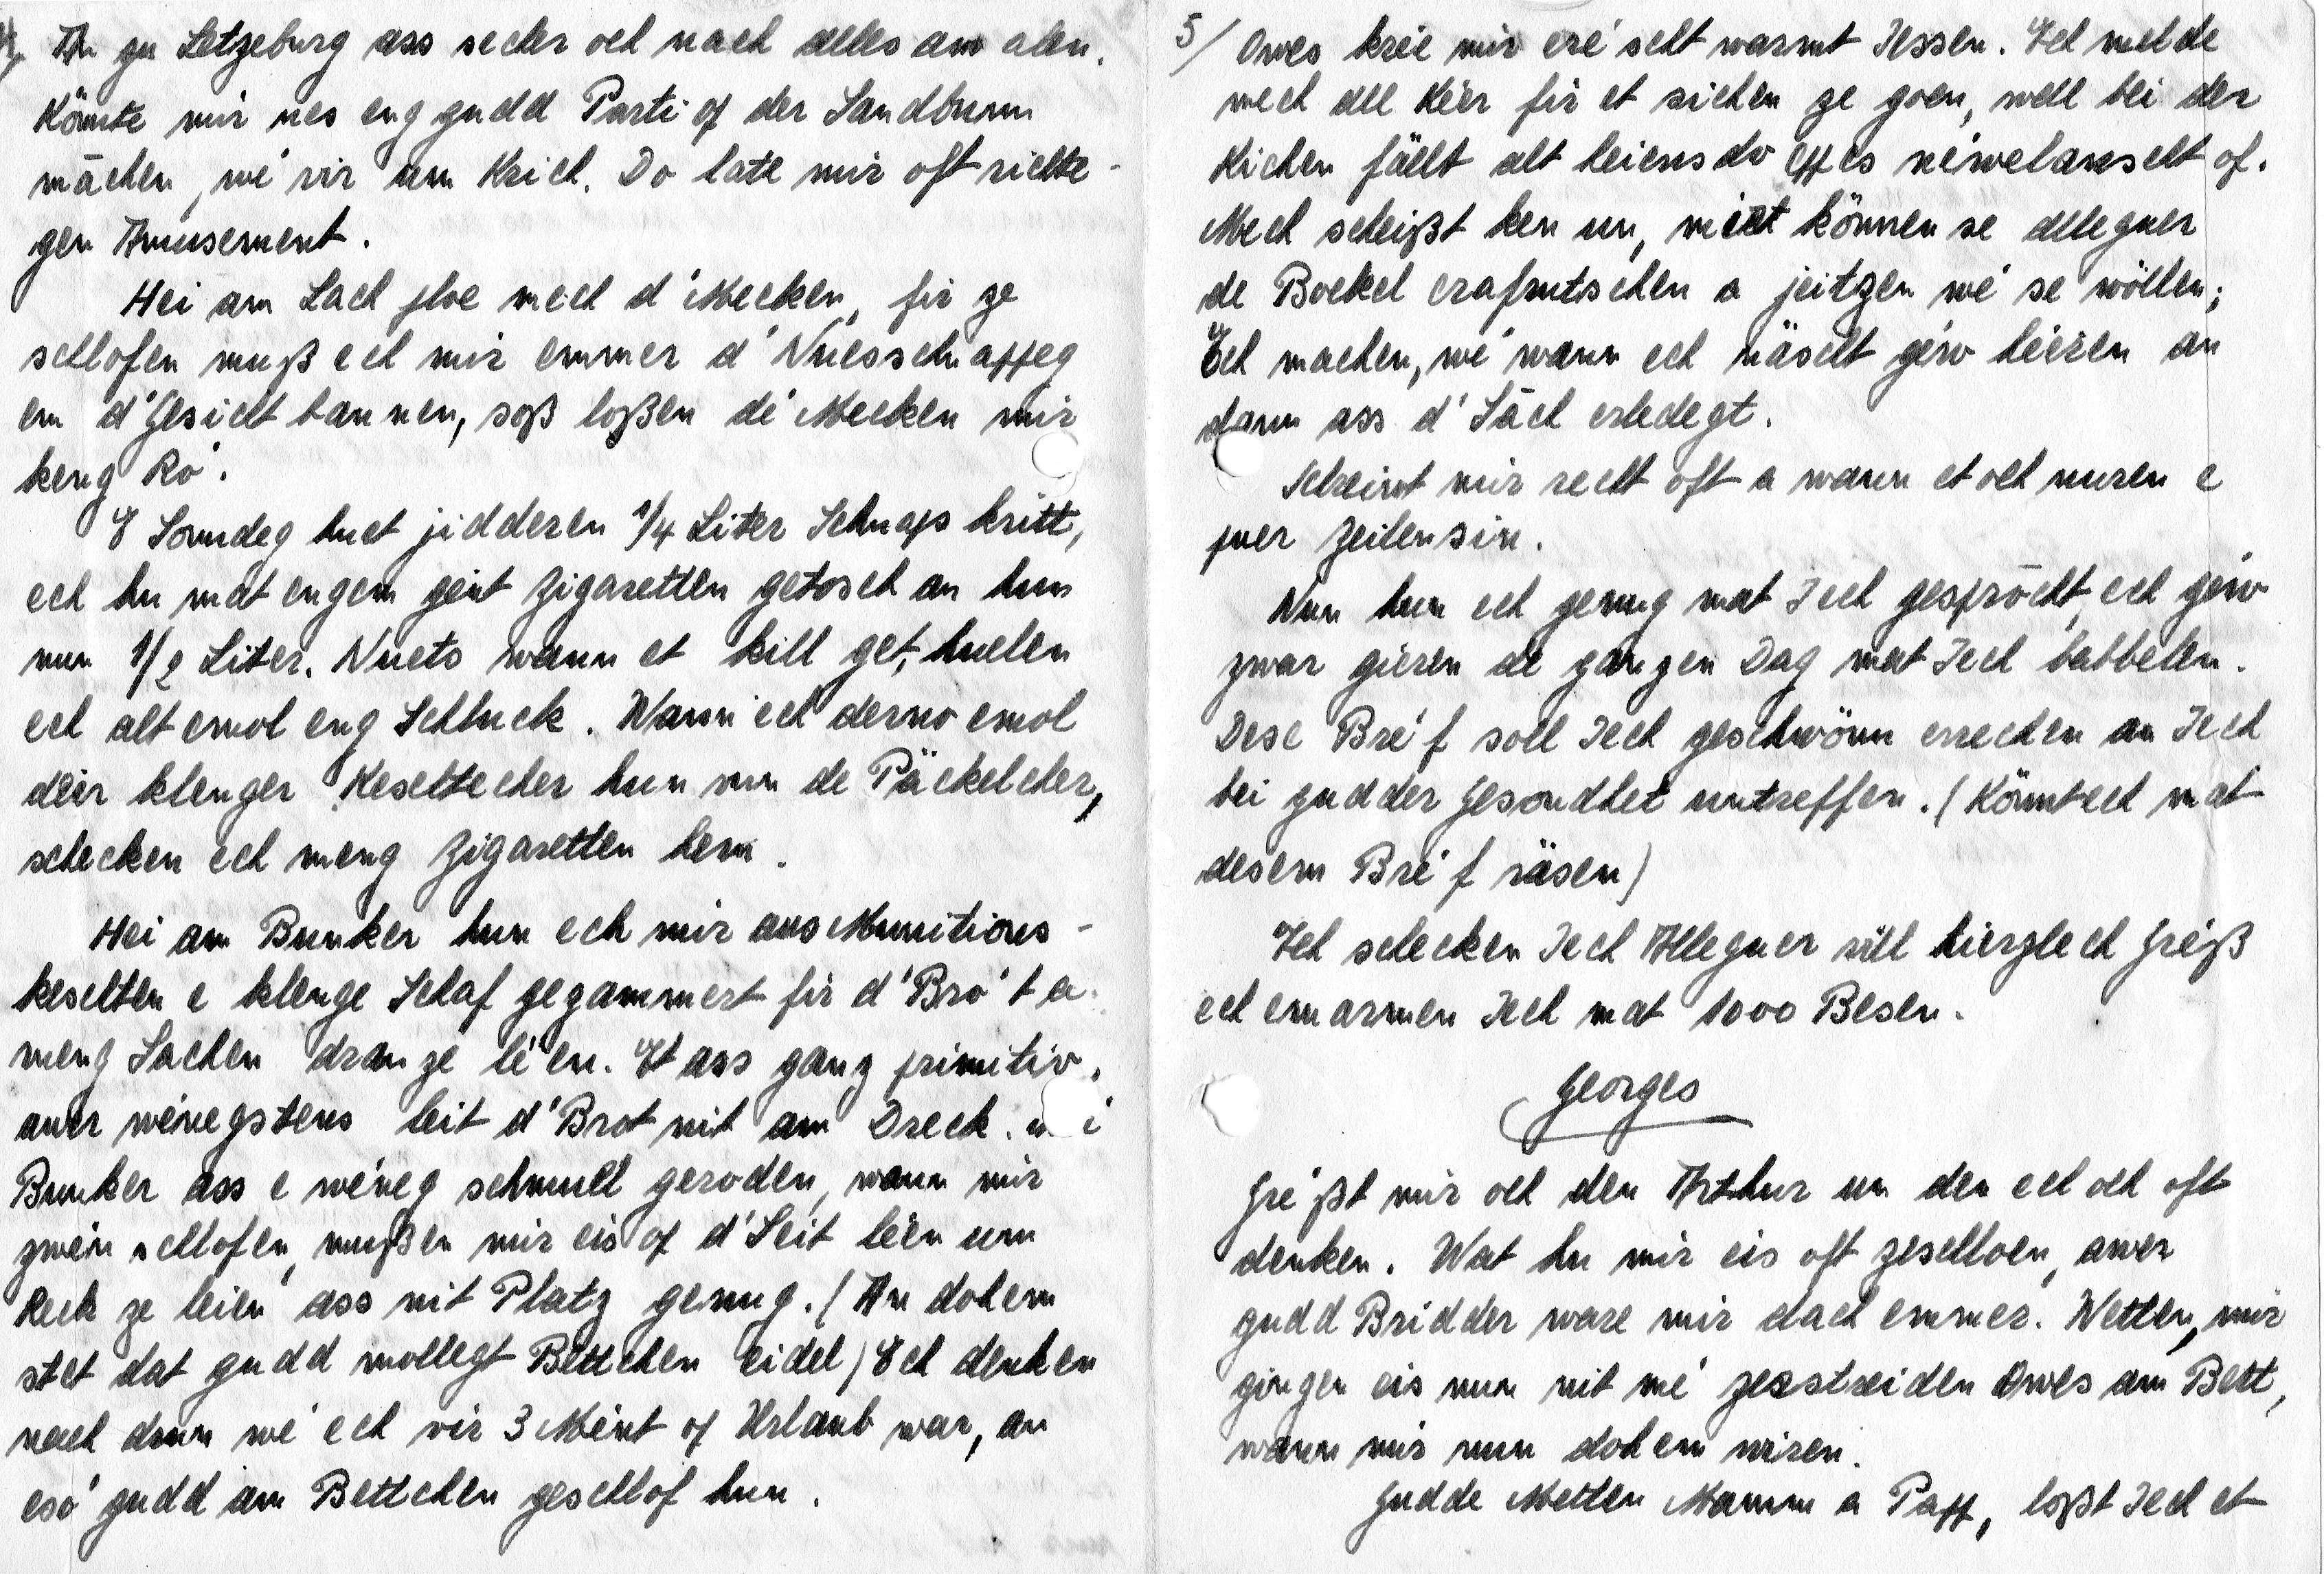 4/ An zu Letzeburg ass secher och nach alles am alen.
Könnte mir nes eng gudd Parti of der Sandbunn
mächen, wé vir um Krich. Do hate mir oft richte-
gen Amusement.
Hei am Lach ploe mech d'Mecken, fir ze
schlofen muß ech mir emmer d'Nuesschnappeg
em d'Gesicht bannen, soß loßen dé Mecken mir
keng Ro'.
E Sonndeg huet jidderen 1/4 Liter Schnaps kritt,
ech hu mat engem géint Zigaretten getosch an hun
nun 1/2 Liter. Nuets wann et kill get, huelen
ech alt emol eng Schluck. Wann ech derno emol
déir klenger Keschtecher hun vun de Päckelcher,
schecken ech meng Zigaretten hem.
Hei am Bunker hun ech mir aus Munitions-
keschten e klenge Schaf gezammert fir d'Bro't a
meng Sachen dran ze le'en. Et ass ganz primitiv,
awer wénegstens leit d'Brot nit am Dreck.
Bunker ass e wéneg schmuel geroden, wann mir
zwéin schlofen, mußen mir eis of d'Seit léen um
Reck ze leien ass nit Platz genug. (An dohem
stet dat gudd mollegt Bettchen eidel) Ech denken
nach drun wé ech vir 3 Méint of Urlaub war, an
eso' gudd am Bettchen geschlof hun.
5/ Owes krée mir eré scht warmt Iessen. Ech melde
mech all Kéier fir et sichen ze goen, well bei der
Kichen fällt alt heiensdo eppes néwelaanscht of.
Mech scheißt ken un, mir können se alleguer
de Bockel erafrutschen a jeitzen wé se wöllen;
Ech machen, wé wann ech näscht géiw héieren an
dann ass d'Sāch erledegt.
Schreiwt mir recht oft a wann et och nuren e
puer Zeilen sin.
Nun hun ech genug mat Iech gesprōcht, ech géiw
zwar gieren de ganzen Dag mat Iech babbelen.
Dese Bré f soll Iech geschwönn errechen an Iech
bei gudder Gesondhet untreffen. (Könnt ech mat
desem Bré f räsen)
Ech schecken Iech Alleguer vill hierzlech Gréiß
ech emarmen Iech mat 1000 Besen.
Georges
Gré ßt mir och den Arthur un den ech och oft
denken. Wat hu mir eis oft zeschloen, awer
gudd Bridder ware mir dach emmer. Wetten, mir
gingen eis nun nit mé zesstreiden Owes am Bett,
wann mir nun dohem wiren.
Gudde Metten Mamm a Papp, loßt Iech et